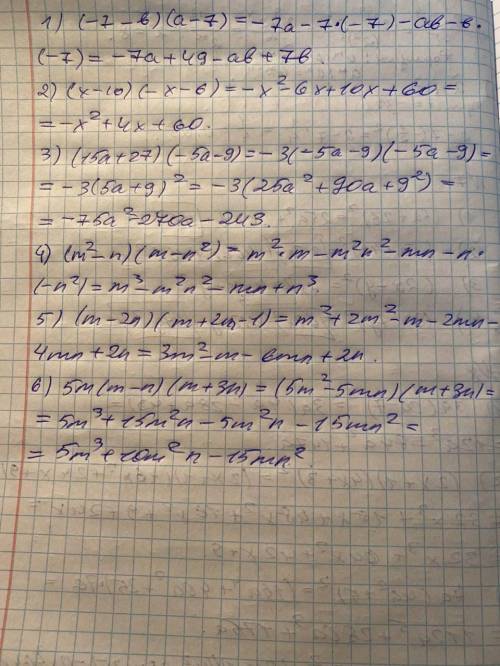 1) (-7-в)(a-7)=-7a-7·(-7)-ав-в·
(-7)=-7a+49-ав+7в.
2) (x-10)(-x-6)=-x²-6x+10x+60=
=-x²+4x+60.
3) (15a+27)(-5a-9)=-3(-5a-9)(-5a-9)=
=-3(5a+9)²=-3(25a²+90a+9²)=
=-75a²-270a-243.
4) (m²-n)(m-n²)=m²·m-m²n²-mn-n·
(-n²)=m³-m²n²-mn+n³.
5) (m-2n)(m+2m-1)=m²+2m²-m-2mn-
4mn+2n=3m²-m-6mn+2n.
6) 5m(m-n)(m+3n)=(5m²-5mn)(m+3n)=
=5m³+15m²n-5m²n-15mn²=
=5m³+10m²n-15mn².